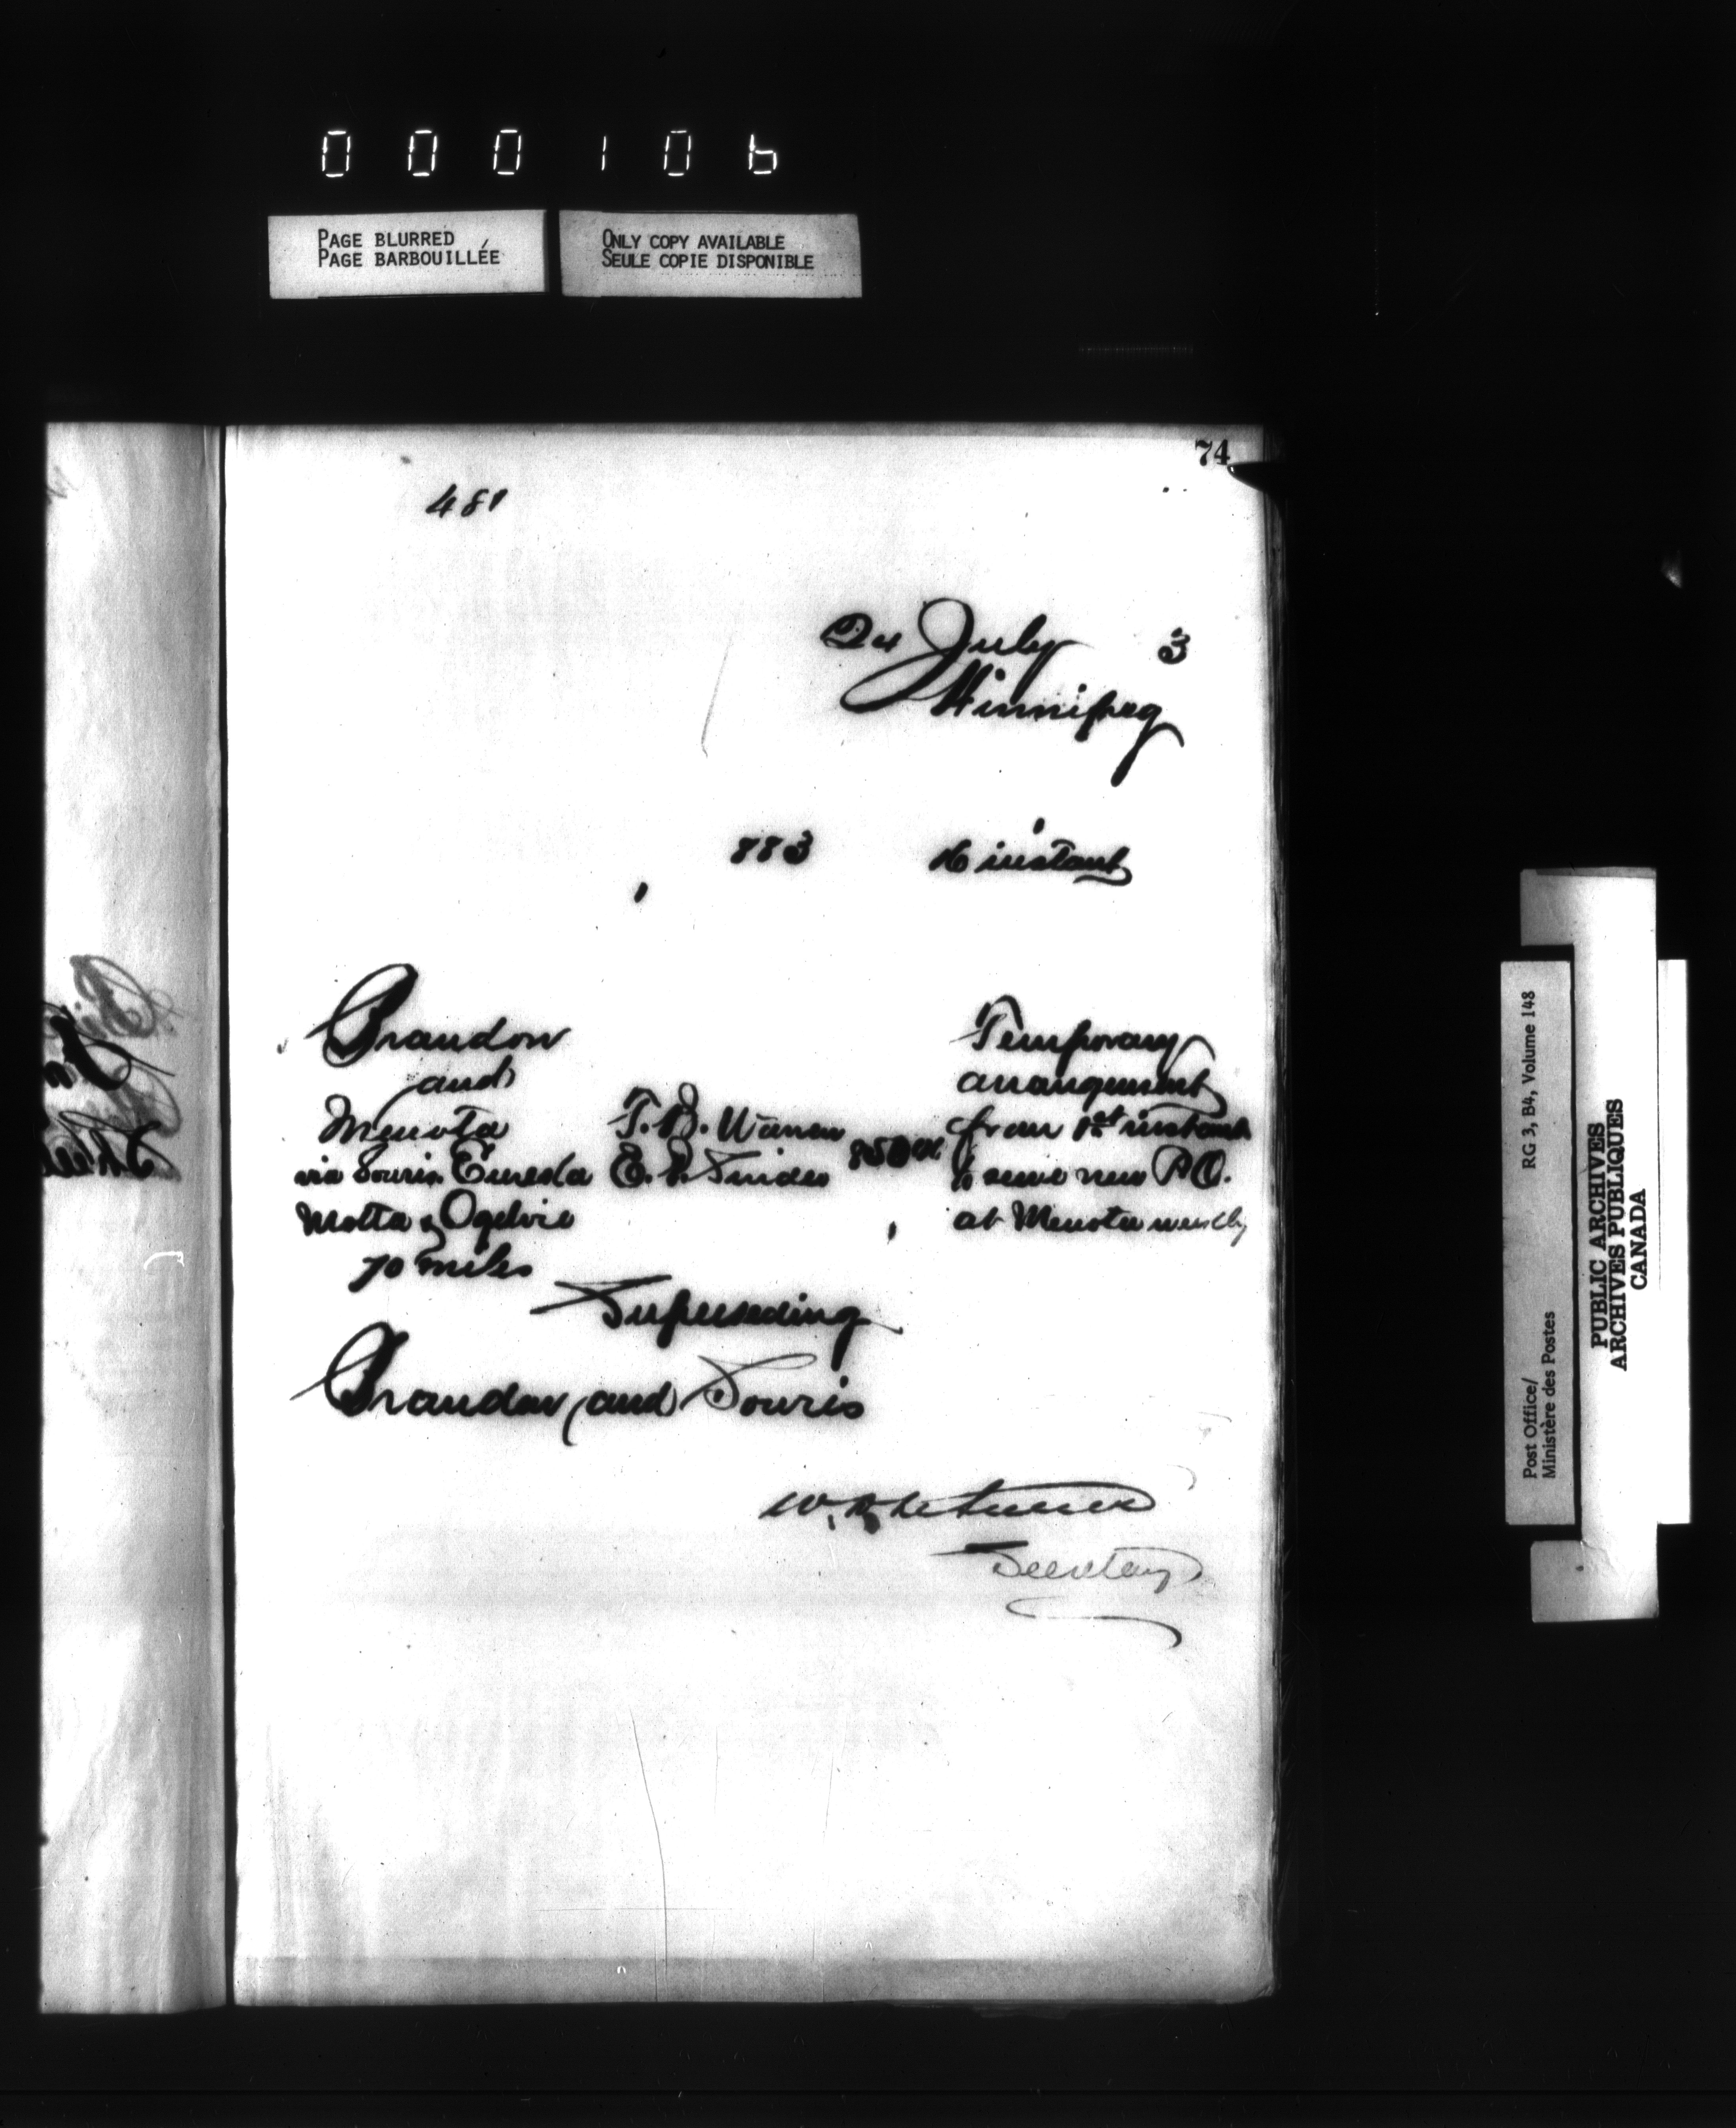 000106
PAGE BLURRED
PAGE BARBOUILLÉE
ONLY COPY AVAILABLE
SEULE COPIE DISPONIBLE
74
481
24 July 3
Winnipeg
883 16 instant
Brandon
and
Menota
via Souris Eureka
Melita & Ogilvie
70 miles
T. B.
E. P.
850
Temporary
arrangement
from 1st instant
to serve new P.O.
at Menota weekly
Superseding
Brandon and Souris
W.
Secretary
Post Office/
Ministère des Postes
RG 3, B4, Volume 148
PUBLIC ARCHIVES
ARCHIVES PUBLIQUES
CANADA